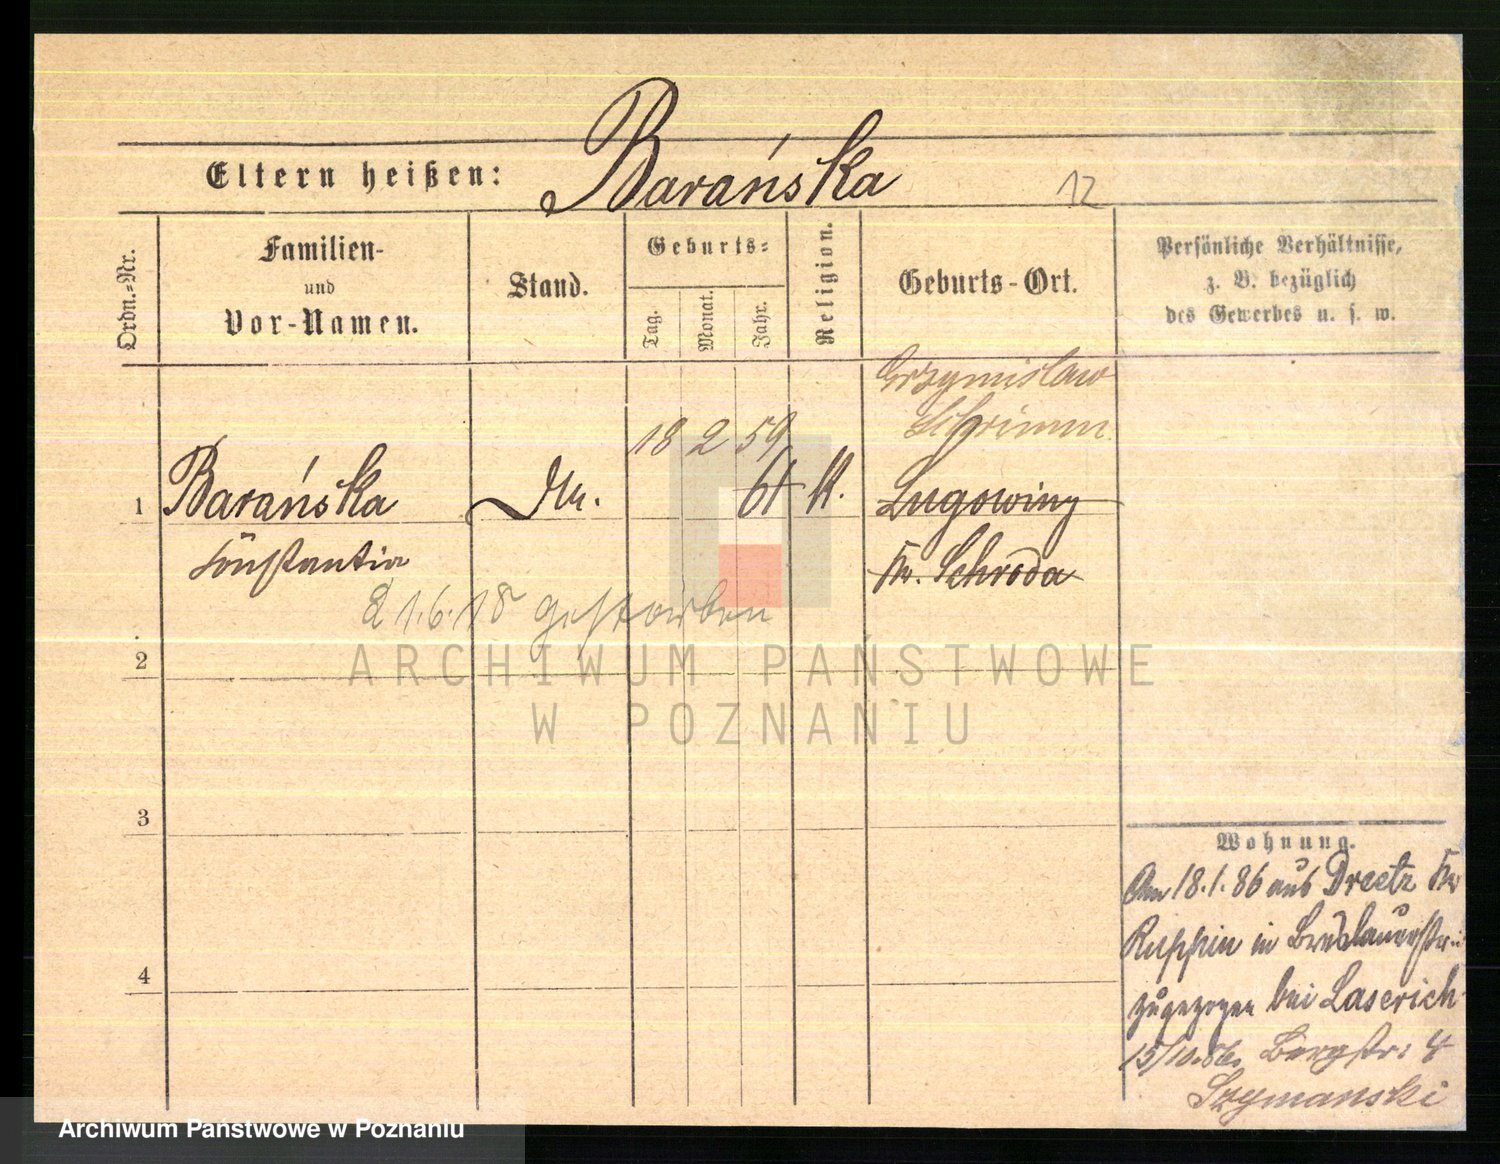 Eltern heißen: Barańska 12
Ordn.-Nr.
Familien- und Vor-Namen.
Stand.
Geburts-
Tag. Monat. Jahr.
Religion.
Geburts-Ort.
Persönliche Verhältnisse,
z. B. bezüglich
des Gewerbes u. s. w.
Grzymislaw
Schrimm
18 2 59
1 Barańska 61 K. Lugowiny
Constantia Kr. Schroda
21.6.18 gestorben
2
ARCHIWUM PAŃSTWOWE
W POZNANIU
3
4
Wohnung.
Am 18.1.86 aus Dreetz Kr
Ruppin in Breslauerstr.
zugezogen bei Laserich
15/10.86. Bergstr: 4
Szymanski
Archiwum Państwowe w Poznaniu